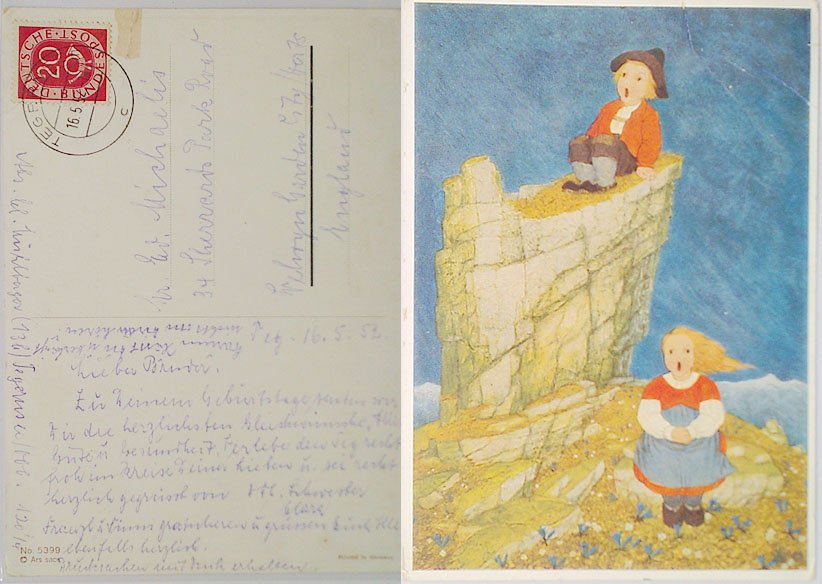 DEUTSCHE BUNDESPOST
20
TEGE
16.5.5
c
Mr Ed. Michaelis
34 Sherrards Park Road
Welwyn Garden City/Harts
England
Teg. 16.5.52
Lieber Bruder.
Zu Deinem Geburtstage senden wir
Dir die herzlichsten Glückwünsche, Alles
Gute u Gesundheit. Verlebe den Tag recht
froh im Kreise Deiner Lieben u. sei recht
herzlich gegrüsst von Schwester
Clara
Franzl u gratulieren u grüssen Euch Alle
ebenfalls herzlich.
Drucksachen mit Dank erhalten.
No. 5399
© Ars sacra
Printed in Germany